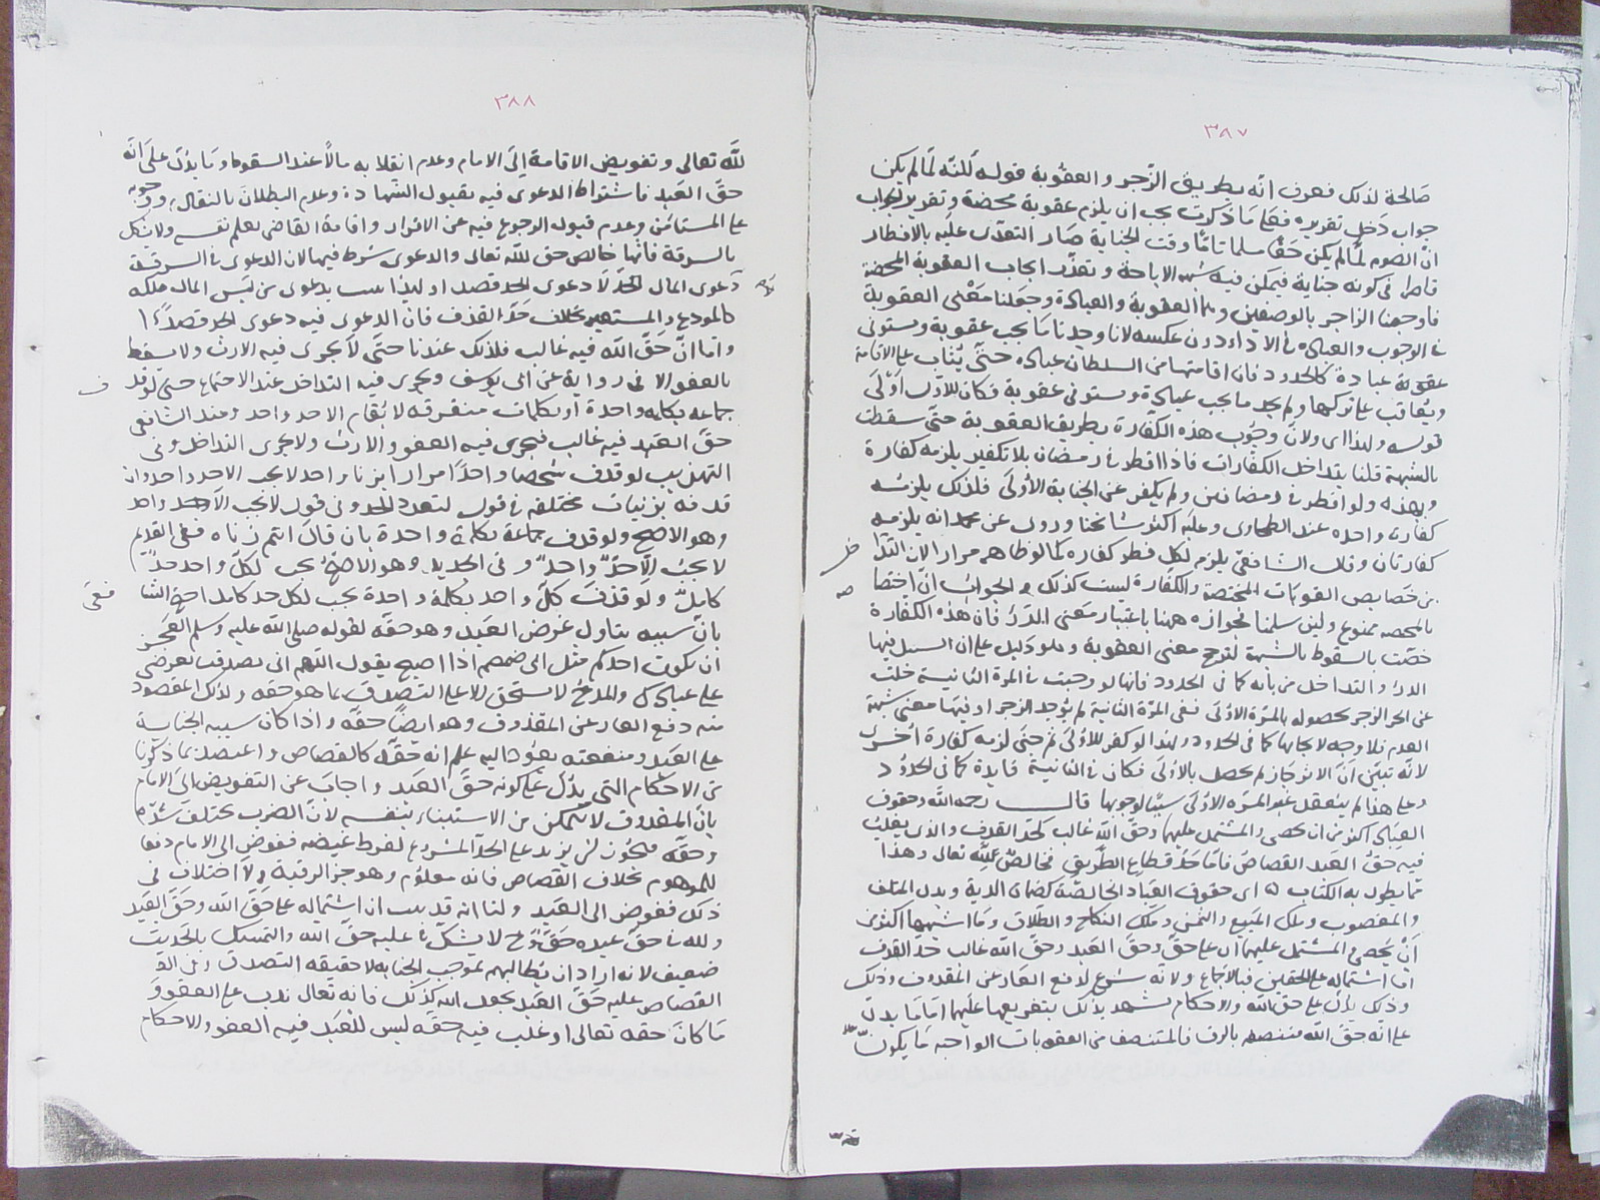 ٣٨٧
صالحة لذلك فعرف انه بطريق الزجر والعقوبة قوله لكنه لما لم يكن
جواب دخل تقريره فعلى ما ذكرت يجب ان يلزم عقوبة محضة وتقرير الجواب
ان الصوم لما لم يكن حقا سلما تاما وقت الجناية صار التعدى عليه بالافطار
قاصرا فى كونه جناية فيمكن فيه شبه الاباحة وتعذر ايجاب العقوبة المحضة
فاوجبنا الزاجر بالوصفين وهما العقوبة والعبادة وجعلنا معنى العقوبة
فى الوجوب والعبادة فى الاداء دون عكسه لانا وجدنا ما يجب عقوبة ويستوفى
عقوبة عبادة كالحدود فان اقامتها من السلطان عبادة حتى يثاب على الاقامة
ويعاقب على تركها ولم نجد ما يجب عبادة ويستوفى عقوبة فكان للاول اولى
قوله ولهذا اى ولان وجوب هذه الكفارة بطريق العقوبة حتى سقطت
بالشبهة قلنا بتداخل الكفارات فاذا افطر فى رمضان بلا تكفير يلزمه كفارة
وبهذه ولو افطر فى رمضانين ولم يكفر عن الجناية الاولى فلذلك يلزمه
كفارة واحدة عند الطحاوى وعليه اكثر مشايخنا وروى عن محمد انه يلزمه
كفارتان وقال الشافعى يلزم لكل فطر كفارة كما لو ظاهر مرارا لان التدا
من خصايص العقوبات المحضة والكفارة ليست كذلك والجواب ان اختصا
صه
بالمحضه ممنوع ولئن سلمنا فجوازه ههنا باعتبار معنى الدرء فان هذه الكفارة
خصت بالسقوط بالشبهة لترجح معنى العقوبة وهو دليل على ان السبل فيها
الدرء والتداخل من بابه كما فى الحدود فانها لو وجبت فى المرة الثانية خلت
عن الزجر لحصوله بالمرة الاولى ففى المرة الثانية لم يوجد الزجر او فيها معنى شبهة
العدم فلا وجه لايجابها كما فى الحدود ولهذا لو كفر للاولى ثم جنى لزمه كفارة اخرى
لانه تبين ان الانزجار لم يحصل بالاولى فكان فى الثانية فايدة كما فى الحدود
وعلى هذا لم ينعقد غير المرة الاولى سببا لوجوبها قال رحمه الله وحقوق
العباد اكثر من ان تحصى والمشتمل عليهما وحق الله غالب كحد القذف والذى يغلب
فيه حق العبد القصاص فاما حد قطاع الطريق فخالص لله تعالى وهذا
مما يطول به الكتاب ٥ اى حقوق العباد الخالصة كضمان الدية وبدل المتلف
والمغصوب وملك المبيع والثمن وملك النكاح والطلاق وما اشبهها اكثر من
ان يحصى والمشتمل عليهما اى على حق وحق العبد وحق الله غالب حد القذف
اما اشتماله على الحقين فبالاجماع ولانه شرع لدفع العار عن المقذوف وذلك
وذلك يدل على حق الله والاحكام تشهد بذلك بتفريعها عليهما اما ما يدل
على انه حق الله فتنصفه بالرق فالمتنصف من العقوبات الواجبة ما يكون
٣٨٨
لله تعالى وتفويض الاقامة الى الامام وعدم انقلابه مالا عند السقوط وما يدل على انه
حق العبد فاشتراط الدعوى فيه بقبول الشهادة وعدم البطلان بالتقادم ووجوبه
على المستامن وعدم قبول الرجوع فيه عن الاقرار واقامة القاضى بعلم نفسه ولا يشكل
بالسرقة فانها خالص حق لله تعالى والدعوى شرط فيها لان الدعوى فى السرقة
دعوى المال لا دعوى الحد قصدا ولهذا بدعوى من ليس المال ملكه
كالمودع والمستعير بخلاف حد القذف فان الدعوى فيه دعوى الحد قصدا
واما ان حق الله فيه غالب فلذلك عندنا حتى لا يجرى فيه الارث ولا يسقط
بالعفو الا فى رواية عن ابى يوسف ويجرى فيه التداخل عند الاجتماع حتى لو قذ
ف
جماعة بكلمة واحدة او بكلمات متفرقه لا يقام الا حد واحد وعند الشافعى
حق العبد فيه غالب فيجرى فيه العفو والارث ولا يجرى التداخل وفى
التهذيب لو قذف شخصا واحدا مرارا بزنا واحد لا يجب الا حد واحد وان
قذفه بزنيات مختلفه فى قول لتعدد الحد وفى قول لا يجب الا حد واحد
وهو الاصح ولو قذف جماعة بكلمة واحدة بان قال انتم زناة ففى القديم
لا يجب الا حد واحد وفى الجديد وهو الاصح يجب لكل واحد حد
كامل ولو قذف كل واحد بكلمة واحدة يجب لكل حد كامل احتج الشا
فعى
بان سببه يتناول عرض العبد وهو حقه لقوله صلى الله عليه وسلم العجز
ان يكون احدكم مثل ابى ضمضم اذا اصبح يقول اللهم انى تصدقت بعرضى
على عبادك والمدح لا يستحق الا على التصدق بما هو حقه ولذلك المقصود
منه دفع العار عن المقذوف وهو ايضا حقه واذا كان سببه الجناية
على العبد ومنفعته يعود اليه علم انه حقه كالقصاص واعتضد بما ذكرنا
من الاحكام التى يدل على كونه حق العبد واجاب عن التفويض الى الامام
بان المقذوف لا يتمكن من الاستيفاء بنفسه لان الضرب يختلف شدة
وخفه فيجوز ان يزيد على الحد المشروع لفرط غيضه ففوض الى الامام دفعا
للموهوم بخلاف القصاص فانه معلوم وهو جز الرقبة ولا اختلاف فى
ذلك ففوض الى العبد ولنا انه قد ثبت ان اشتماله على حق الله وحق العبد
ولله فى حق عبده حق لا يشكل عليه حق الله والتمسك بالحديث
ضعيف لانه اراد ان يطالبهم بموجب الجناية لا حقيقه التصدق
القصاص عليه حق العبد بجعل الله كذلك فانه تعالى ندب على العفو و
ما كان حقه تعالى او غلب فيه حقه ليس للعبد فيه العفو والاحكام